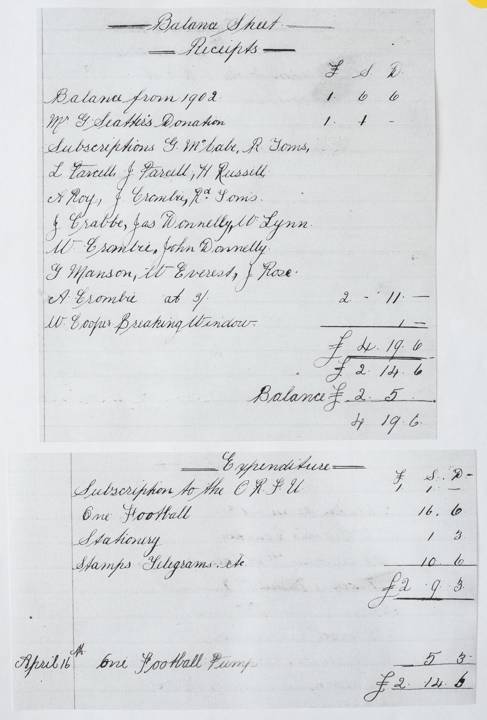 Balance Sheet
Receipts
£ S D
Balance from 1902 1 6 6
Mr G Seatter's Donation 1 1 -
Subscriptions G McCabe, R Toms,
L Farcell, J Farcell, H Russell
A Roy, J Crombie, Rd Toms.
J Crabbe, Jas Donnelly, W Lynn.
W Crombie, John Donnelly
G Manson, W Everest, J Rose.
A Crombie at 3/ 2 - 11 -
W Cooper Breaking Window. 1 -
£ 4. 19. 6
£ 2 14. 6
Balance £ 2. 5.
4 19 6.
Expenditure
£ S. D-
Subscription to the O R F U 1 1 -
One Football 16. 6
Stationery 1 3
Stamps Telegrams. etc 10 6
£2 9 3
April 16th One Football Pump 5 3
£2. 14 6